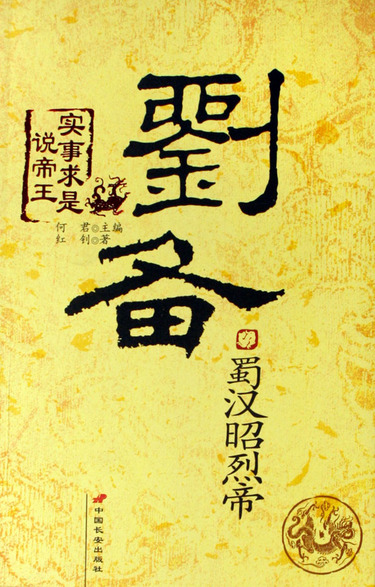 劉备
实事求是
说帝王
何 君◎主编
红 钊◎著
蜀汉昭烈帝
中国长安出版社